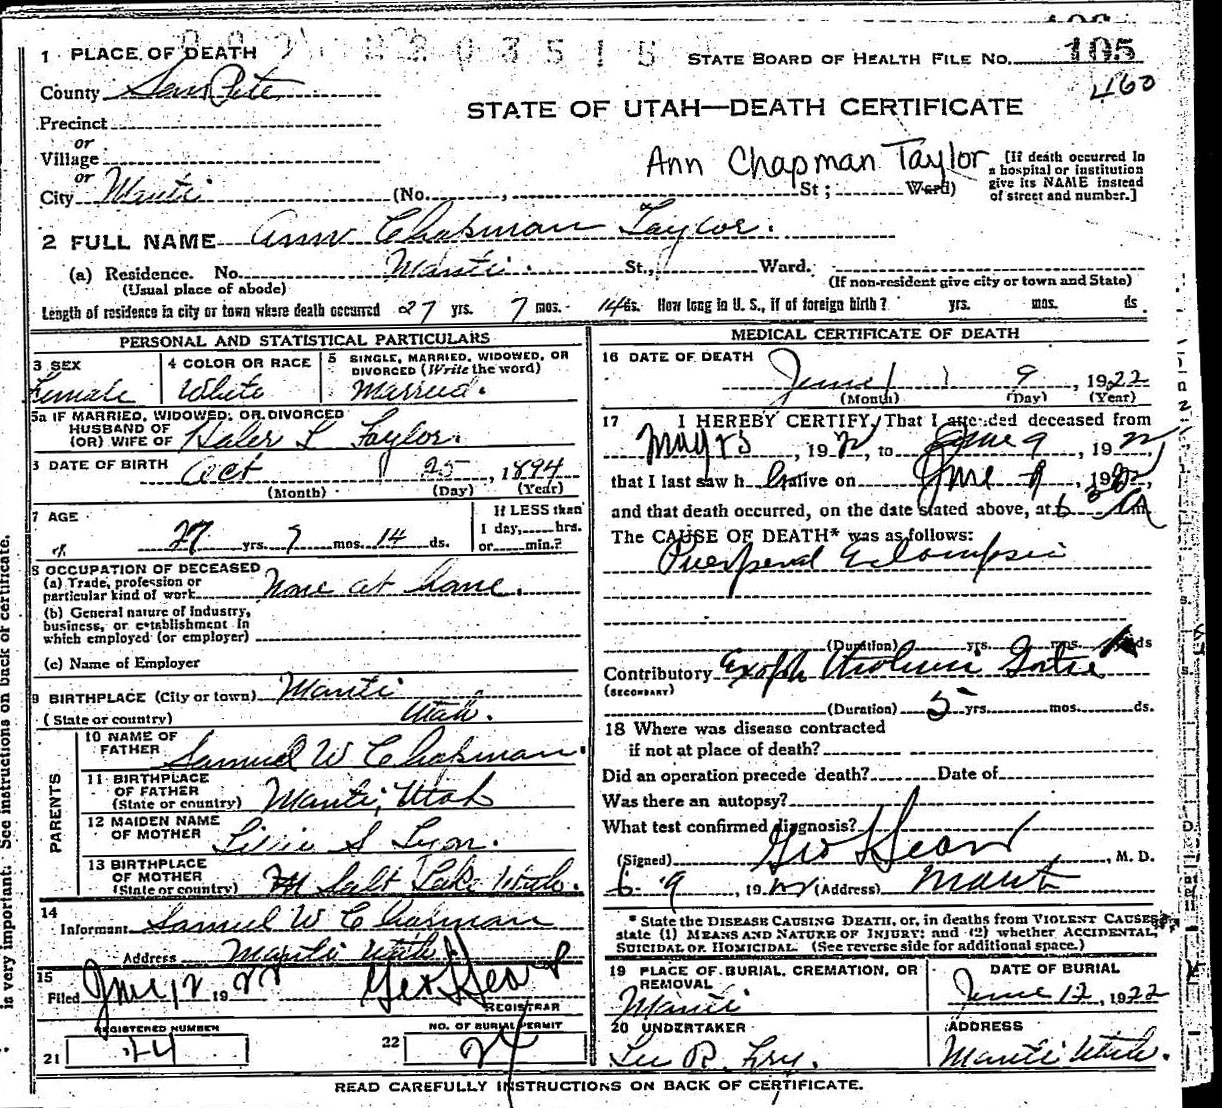 2203515
1 PLACE OF DEATH
STATE BOARD OF HEALTH FILE No. 105
460
County SanPete
STATE OF UTAH—DEATH CERTIFICATE
Precinct
or
Village
or
City Manti (No. St; Ward)
Ann Chapman Taylor
[If death occurred in a hospital or institution give its NAME instead of street and number.]
2 FULL NAME Ann Chapman Taylor.
(a) Residence. No. Manti. St., Ward.
(Usual place of abode) (If non-resident give city or town and State)
Length of residence in city or town where death occurred 27 yrs. 7 mos. 14 ds. How long in U. S., if of foreign birth? yrs. mos. ds.
PERSONAL AND STATISTICAL PARTICULARS
3 SEX Female
4 COLOR OR RACE White
5 SINGLE, MARRIED, WIDOWED, OR DIVORCED (Write the word) Married.
5a IF MARRIED, WIDOWED, OR DIVORCED
HUSBAND OF
(OR) WIFE OF L Taylor.
DATE OF BIRTH Oct 25, 1894
(Month) (Day) (Year)
7 AGE 27 yrs. 7 mos. 14 ds.
If LESS than 1 day, hrs. or min.?
8 OCCUPATION OF DECEASED
(a) Trade, profession or particular kind of work None at home.
(b) General nature of industry, business, or establishment in which employed (or employer)
(c) Name of Employer
9 BIRTHPLACE (City or town) Manti
(State or country) Utah.
PARENTS
10 NAME OF FATHER Samuel W Chapman.
11 BIRTHPLACE OF FATHER (State or country) Manti, Utah
12 MAIDEN NAME OF MOTHER S
13 BIRTHPLACE OF MOTHER (State or country) Salt Lake Utah.
14 Informant Samuel W Chapman
Address Manti Utah
15 Filed June 12 1922
REGISTRAR
REGISTERED NUMBER
21 24
22 NO. OF BURIAL PERMIT 24
MEDICAL CERTIFICATE OF DEATH
16 DATE OF DEATH
June 9, 1922
(Month) (Day) (Year)
17 I HEREBY CERTIFY, That I attended deceased from
, 19 , to June 9, 19
that I last saw h alive on June 9, 19 ,
and that death occurred, on the date stated above, at 6 30 A m.
The CAUSE OF DEATH* was as follows:
Puerperal Eclampsia
(Duration) yrs. mos. ds
Contributory
(SECONDARY)
(Duration) 5 yrs. mos. ds.
18 Where was disease contracted
if not at place of death?
Did an operation precede death? Date of
Was there an autopsy?
What test confirmed diagnosis?
(Signed) Geo , M. D.
6 9, 19 (Address) Manti
* State the DISEASE CAUSING DEATH, or, in deaths from VIOLENT CAUSES, state (1) MEANS AND NATURE OF INJURY; and (2) whether ACCIDENTAL, SUICIDAL OR HOMICIDAL. (See reverse side for additional space.)
19 PLACE OF BURIAL, CREMATION, OR REMOVAL
Manti
DATE OF BURIAL
June 12, 1922
20 UNDERTAKER
R.
ADDRESS
Manti Utah.
READ CAREFULLY INSTRUCTIONS ON BACK OF CERTIFICATE.
is very important. See instructions on back of certificate.